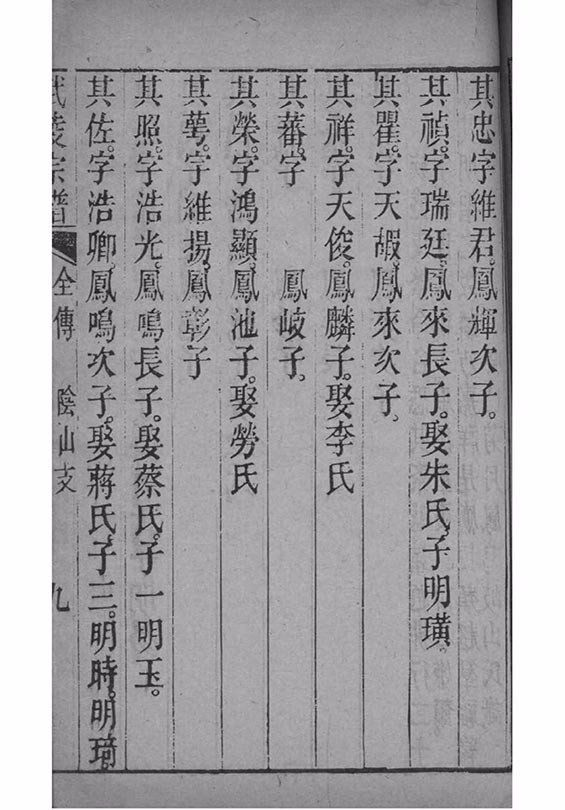 其忠字維君。鳳輝次子。
其禎。字瑞廷。鳳來長子。娶朱氏。子明璜。
其瞿。字天嘏。鳳來次子。
其祥。字天俊。鳳麟子。娶李氏
其蕃。字　　鳳岐子。
其榮。字鴻顯。鳳池子。娶勞氏
其萼。字維揚。鳳彰子
其照。字浩光。鳳鳴長子。娶蔡氏。子一明玉。
其佐。字浩卿。鳳鳴次子。娶蔣氏。子三。明時。明琦。
武陵宗譜　全傳　陰山支　九